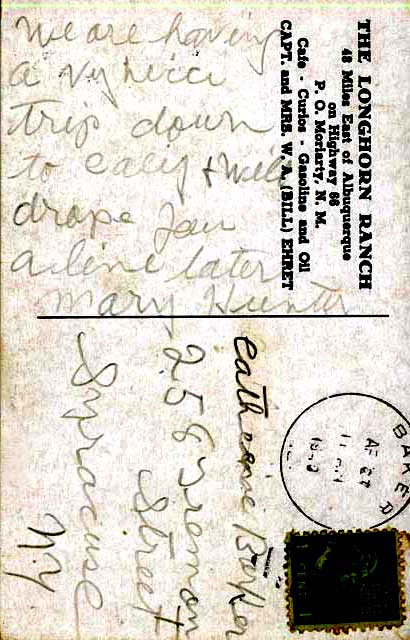 THE LONGHORN RANCH
48 Miles East of Albuquerque
on Highway 66
P. O. Moriarty, N. M.
Cafe - Curios - Gasoline and Oil
CAPT. and MRS. W. A. (BILL) EHRET
We are having
a very nice
trip down
to Caly + will
drope you
a line later
Mary Hunter
Catherine Barker
258
Street
Syracuse
NY
BAKE